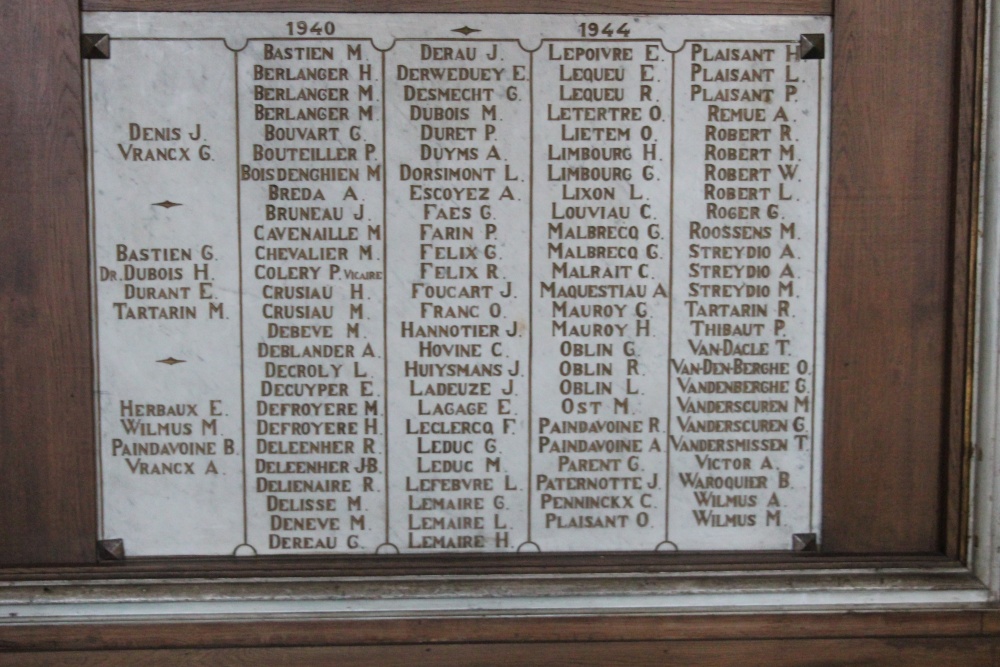 1940
1944
DENIS J.
VRANCX G.
BASTIEN G.
DR. DUBOIS H.
DURANT E.
TARTARIN M.
HERBAUX E.
WILMUS M.
PAINDAVOINE B.
VRANCX A.
BASTIEN M.
BERLANGER H.
BERLANGER M.
BERLANGER M.
BOUVART G.
BOUTEILLER P.
BOISDENGHIEN M
BREDA A.
BRUNEAU J.
CAVENAILLE M
CHEVALIER M.
COLERY P. VICAIRE
CRUSIAU H.
CRUSIAU M.
DEBEVE M.
DEBLANDER A.
DECROLY L.
DECUYPER E.
DEFROYERE M.
DEFROYERE H.
DELEENHER R.
DELEENHER J-B.
DELIENAIRE R.
DELISSE M.
DENEVE M.
DEREAU G.
DERAU J.
DERWEDUEY E.
DESMECHT G.
DUBOIS M.
DURET P.
DUYMS A.
DORSIMONT L.
ESCOYEZ A.
FAES G.
FARIN P.
FELIX G.
FELIX R.
FOUCART J.
FRANC O.
HANNOTIER J.
HOVINE C.
HUIYSMANS J.
LADEUZE J.
LAGAGE E.
LECLERCQ F.
LEDUC G.
LEDUC M.
LEFEBVRE L.
LEMAIRE G.
LEMAIRE L.
LEMAIRE H.
LEPOIVRE E.
LEQUEU E.
LEQUEU R.
LETERTRE O.
LIETEM O.
LIMBOURG H.
LIMBOURG G.
LIXON L.
LOUVIAU C.
MALBRECQ G.
MALBRECQ G.
MALRAIT C.
MAQUESTIAU A
MAUROY G.
MAUROY H.
OBLIN G.
OBLIN R.
OBLIN L.
OST M.
PAINDAVOINE R.
PAINDAVOINE A
PARENT G.
PATERNOTTE J.
PENNINCKX C.
PLAISANT O.
PLAISANT H.
PLAISANT L.
PLAISANT P.
REMUE A.
ROBERT R.
ROBERT M.
ROBERT W.
ROBERT L.
ROGER G.
ROOSSENS M.
STREYDIO A.
STREYDIO A.
STREYDIO M.
TARTARIN R.
THIBAUT P.
VAN-DACLE T.
VAN-DEN-BERGHE O.
VANDENBERGHE G.
VANDERSCUREN M
VANDERSCUREN G.
VANDERSMISSEN T.
VICTOR A.
WAROQUIER B.
WILMUS A
WILMUS M